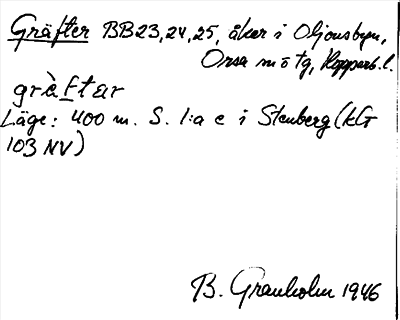 Gräfter BB23,24,25, åker i Oljonsbyn,
Orsa sn o tg, Kopparb. l.
gräftar
Läge: 400 m. S. 1:a e i Stenberg (kG
103 NV)
B. Granholm 1946